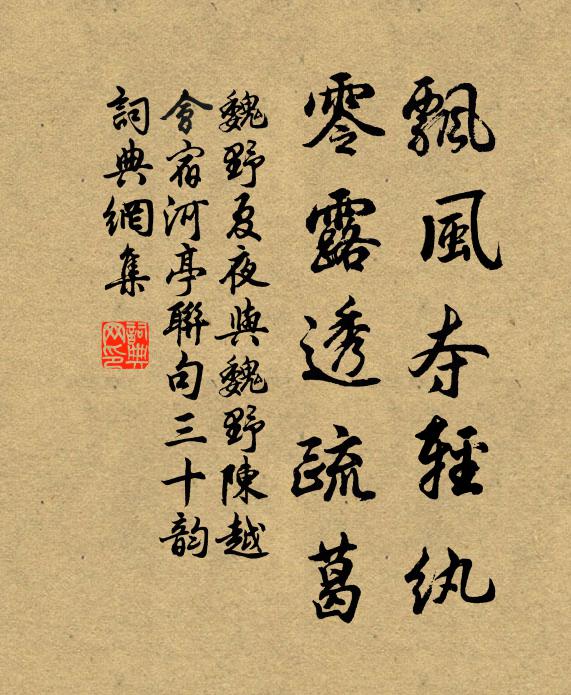 飄風夺輕紈
零露透疏葛
魏野夏夜與魏野陳越
會宿河亭聯句三十韵
詞典網集
詞典网印